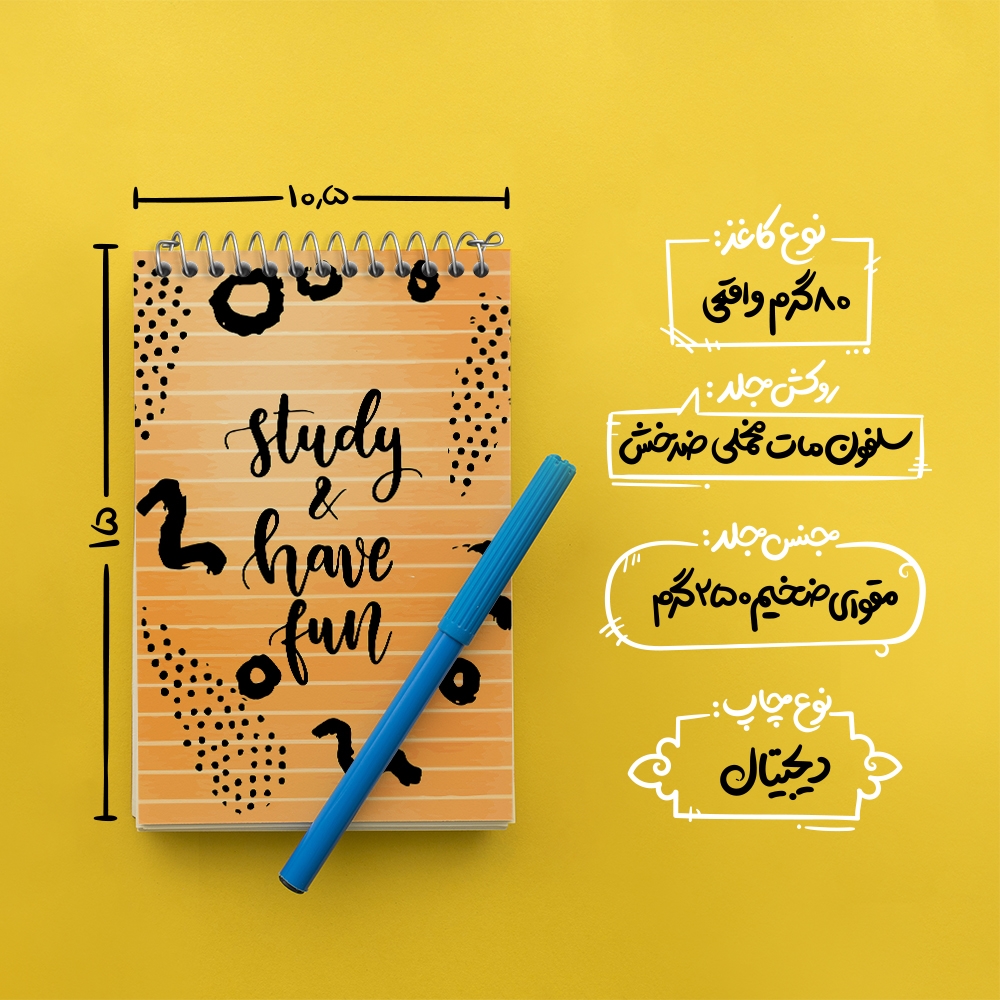 ۱۰٫۵
۱۵
study
&
have
fun
نوع کاغذ:
۸۰ گرم واقعی
روکش مجلد:
سلفون مات مخملی ضدخش
جنس مجلد:
مقوای ضخیم ۲۵۰ گرم
نوع چاپ:
دیجیتال